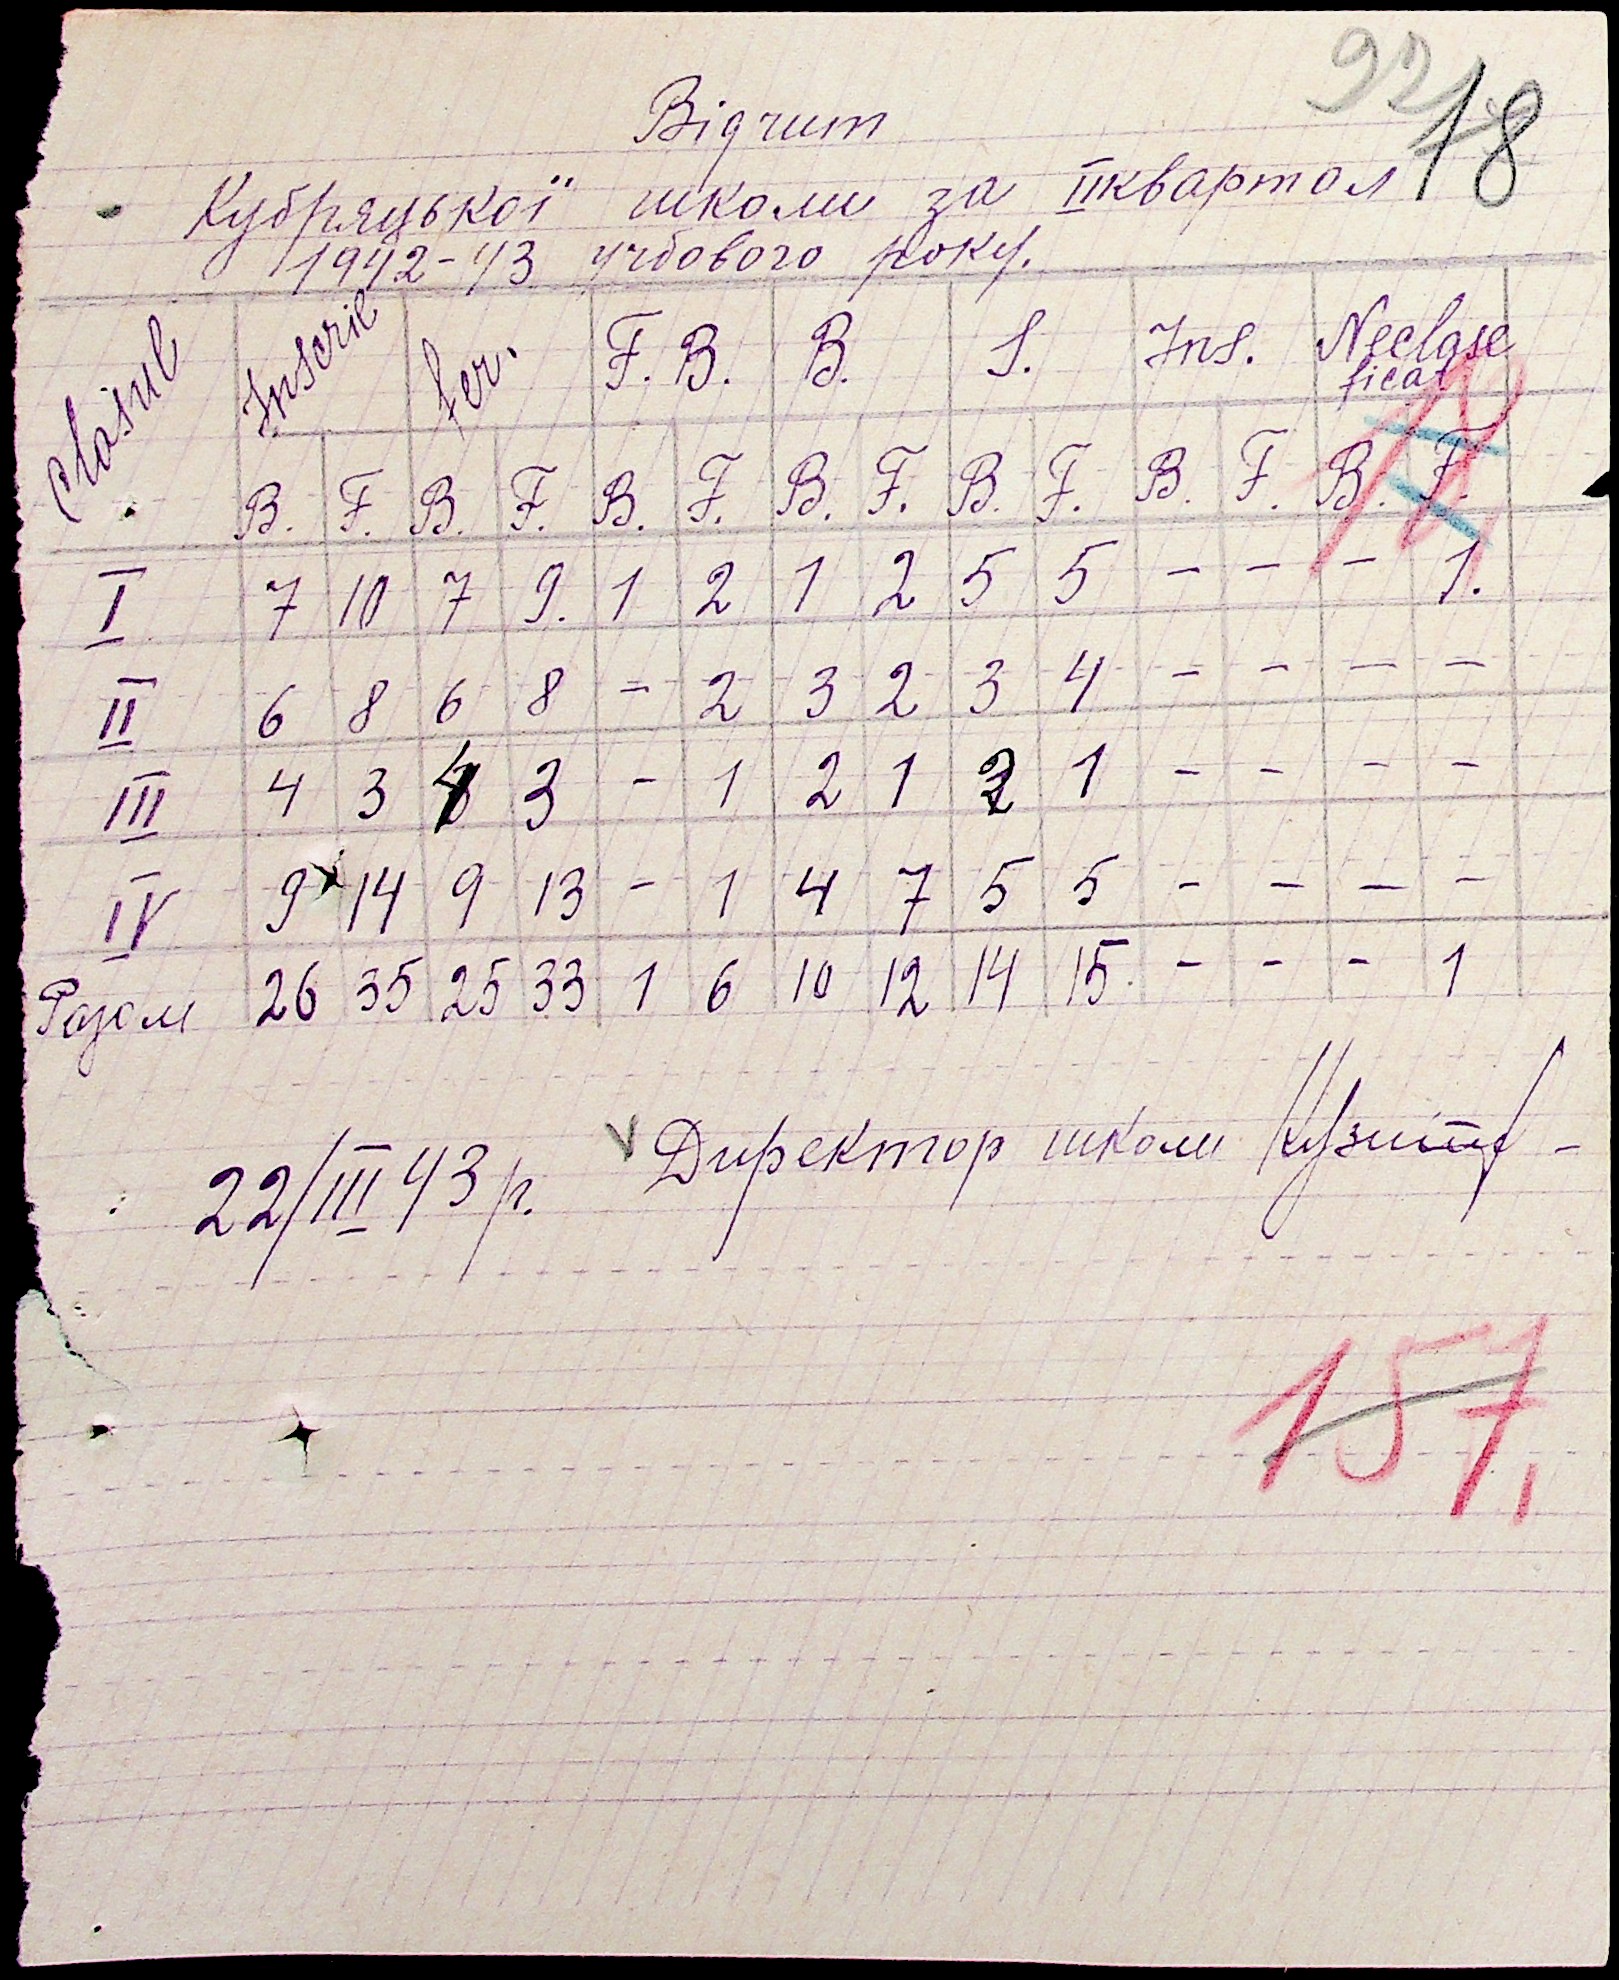 18
Відчит
Кубряцької школи за II квартал
1942-43 учбового року.
Clasul Inscriι fer. F. B. B. S. Ins. Neclase
ficat
B. F. B. F. B. F. B. F. B. F. B. F. B. F.
I 7 10 7 9. 1 2 1 2 5 5 - - - 1.
II 6 8 6 8 - 2 3 2 3 4 - - - -
III 4 3 4 3 - 1 2 1 2 1 - - - -
IV 9 14 9 13 - 1 4 7 5 5 - - - -
Разом 26 35 25 33 1 6 10 12 14 15 - - - 1
22/III 43 р. V Директор школи
157,